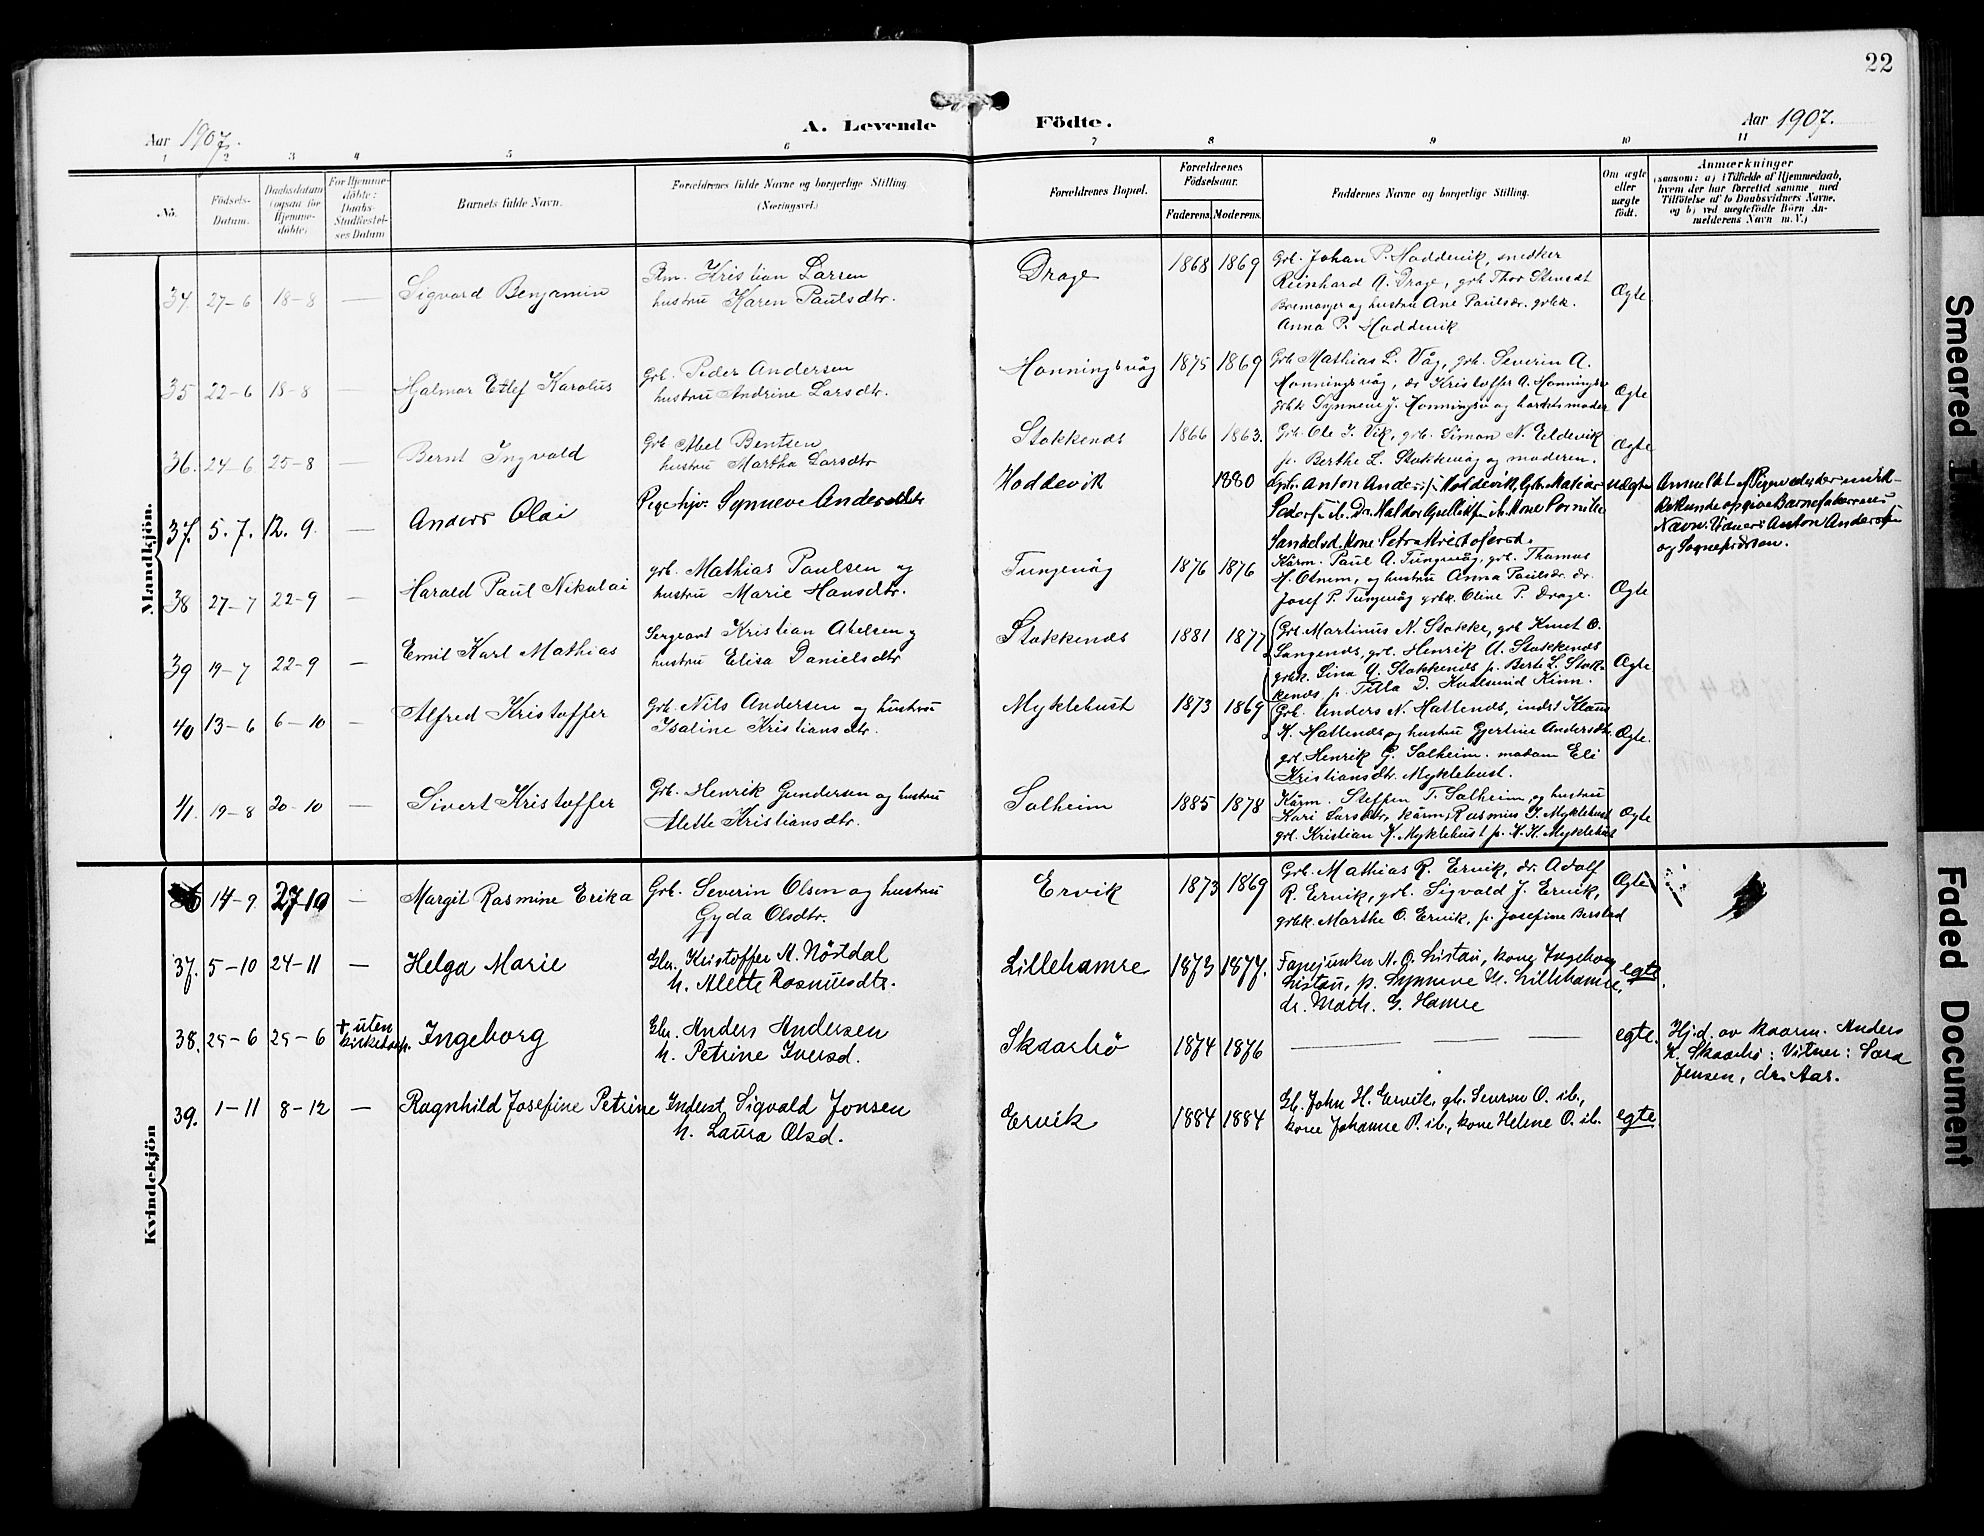 22
Aar 1907.
A. Levende Födte.
Aar 1907.
1 2 3 4 5 6 7 8 9 10 11
No.
Födsels-Datum.
Daabsdatum (ogsaa for Hjemme-döbte)
For Hjemme-döbte: Daabs-Stadfæstel-ses Datum
Barnets fulde Navn.
Forældrenes fulde Navne og borgerlige Stilling (Næringsvei.)
Forældrenes Bopæl.
Forældrenes Födselsaar.
Faderens. Moderens.
Faddernes Navne og borgerlige Stilling.
Om ægte eller uægte födt.
Anmærkninger
(saasom: a) i Tilfælde af Hjemmedaab,
hvem der har forrettet samme med
Tilföielse af to Daabsvidners Navne,
og b) ved uægtefödte Börn An-
melderens Navn m. V.)
Mandkjön.
34. 27-6 18-8 — Sigvard Benjamin
Kristian Larsen
hustru Karen Paulsdtr.
Drage 1868 1869
Grb. Johan P. Hoddevik, snedker
Reinhard A. Drage, grb Thor Stensdt
Bremanger og hustru Ane Paulsdr. grbk.
Anna P. Hoddevik
Ægte.
35 22-6 18-8 — Hjalmar Etlef Karolus
Grb. Peder Andersen
hustru Andrine Larsdtr.
Honningsvåg 1875 1869
Grb Mathias L. Våg, grb. Severin A.
Honningsvåg, dr Kristoffer A. Honningsv
grbk Synneve J. Honningsv og barnets moder
Ægte
36. 24-6 25-8 — Bernt Ingvald
Grb Abel Bentsen
hustru Martha Larsdtr
Stokkenes 1866 1863.
Grb. Ole J. Vik, grb. Simon N. Eldevik
p. Berthe L. Stokkevåg og moderen.
Ægte
37. 5.7. 12.9. Anders Olai
Pige hjv. Synneve Andersdtr
Hoddevik 1880
Grbr. Anton Anders: Hoddevik, Gbr. Matias
Peders: ib. Dr. Haldor ib. Kone Pernille
Sandelsd. Kone Petra Kristofersd.
uægte
Anmeldt af Pigen selv der
ikke kunde opgive Barnefaderens
Navn. Vidner: Anton Anders:
og Sognepresten.
38 27-7 22-9 — Harald Paul Nikolai
grb. Mathias Paulsen og
hustru Marie Hansdtr.
Tungevåg 1876 1876
Kårm. Paul A. Tungevåg, grb. Thomas
M. Otnem, og hustru Anna Paulsdr. dr.
Josef P. Tungevåg grbk. Oline P. Drage.
Ægte
39 19-7 22-9 — Emil Karl Mathias
Sergeant Kristian Abelsen og
hustru Elisa Danielsdtr
Stokkenes 1881 1877
Grb. Martinus N. Stokke, grb Knut O.
Langenes, grb. Henrik A. Stokkenes
grbk. Lina A. Stokkenes p. Berte L. Stok-
kenes p. Tilla D. Kvalsund Kinn.
Ægte
40 13-6 6-10 — Alfred Kristoffer
Grb. Nils Andersen og hustru
Isaline Kristiansdtr.
Myklebust 1873 1869
Grb. Anders N. Hatlenes, inds Klaus
K. Hatlenes og hustru Gjertine Andersdtr.
grb. Henrik G. Salheim. madam Eli
Kristiansdtr. Myklebust.
Ægte.
41. 19-8 20-10 — Sivert Kristoffer
Grb. Henrik Gundersen og hustru
Alette Kristiansdtr.
Salheim 1885 1878
Kårm. Steffen T. Salheim og hustru
Kari Larsdtr, kårm. Rasmus J. Myklebust
grb. Kristian K. Myklebust p. K. K. Myklebust
Ægte
Kvindekjön
14-9 27 10 — Margit Rasmine Erika
Grb. Severin Olsen og hustru
Gyda Olsdtr.
Ervik 1873 1869
Grb. Mathias R. Ervik, dr. Adolf
R. Ervik, grb. Sigvald J. Ervik,
grbk. Marthe O. Ervik, p. Josefine Berstad
Ægte
37. 5-10 24-11 — Helga Marie
Gbr. Kristoffer M. Nörtdal
h. Alette Rasmusdtr.
Lillehamre 1873 1877.
Fanejunker N. O. Listau, kone Ingeborg
Listau, p. Synneve Lillehamre,
dr. Math. G. Hamre
egte.
38. 25-6 25-6 + uten kirkedaap. Ingeborg
Gbr. Anders Andersen
h. Petrine Iversd.
Skaarbö 1874 1876
— — — —
egte.
Hj.d. av kaarm. Anders
K. Skaarbö: Vitner: Sara
Jensen, dr. Aar.
39. 1-11 8-12 — Ragnhild Josefine Petrine
Inderst Sigvald Jonsen
h. Laura Olsd.
Ervik 1884 1884
Gb. John H. Ervik, gb. Severin O. ib.,
kone Johanne P. ib., kone Helene O. ib.
egte.
Smeared
Faded Document